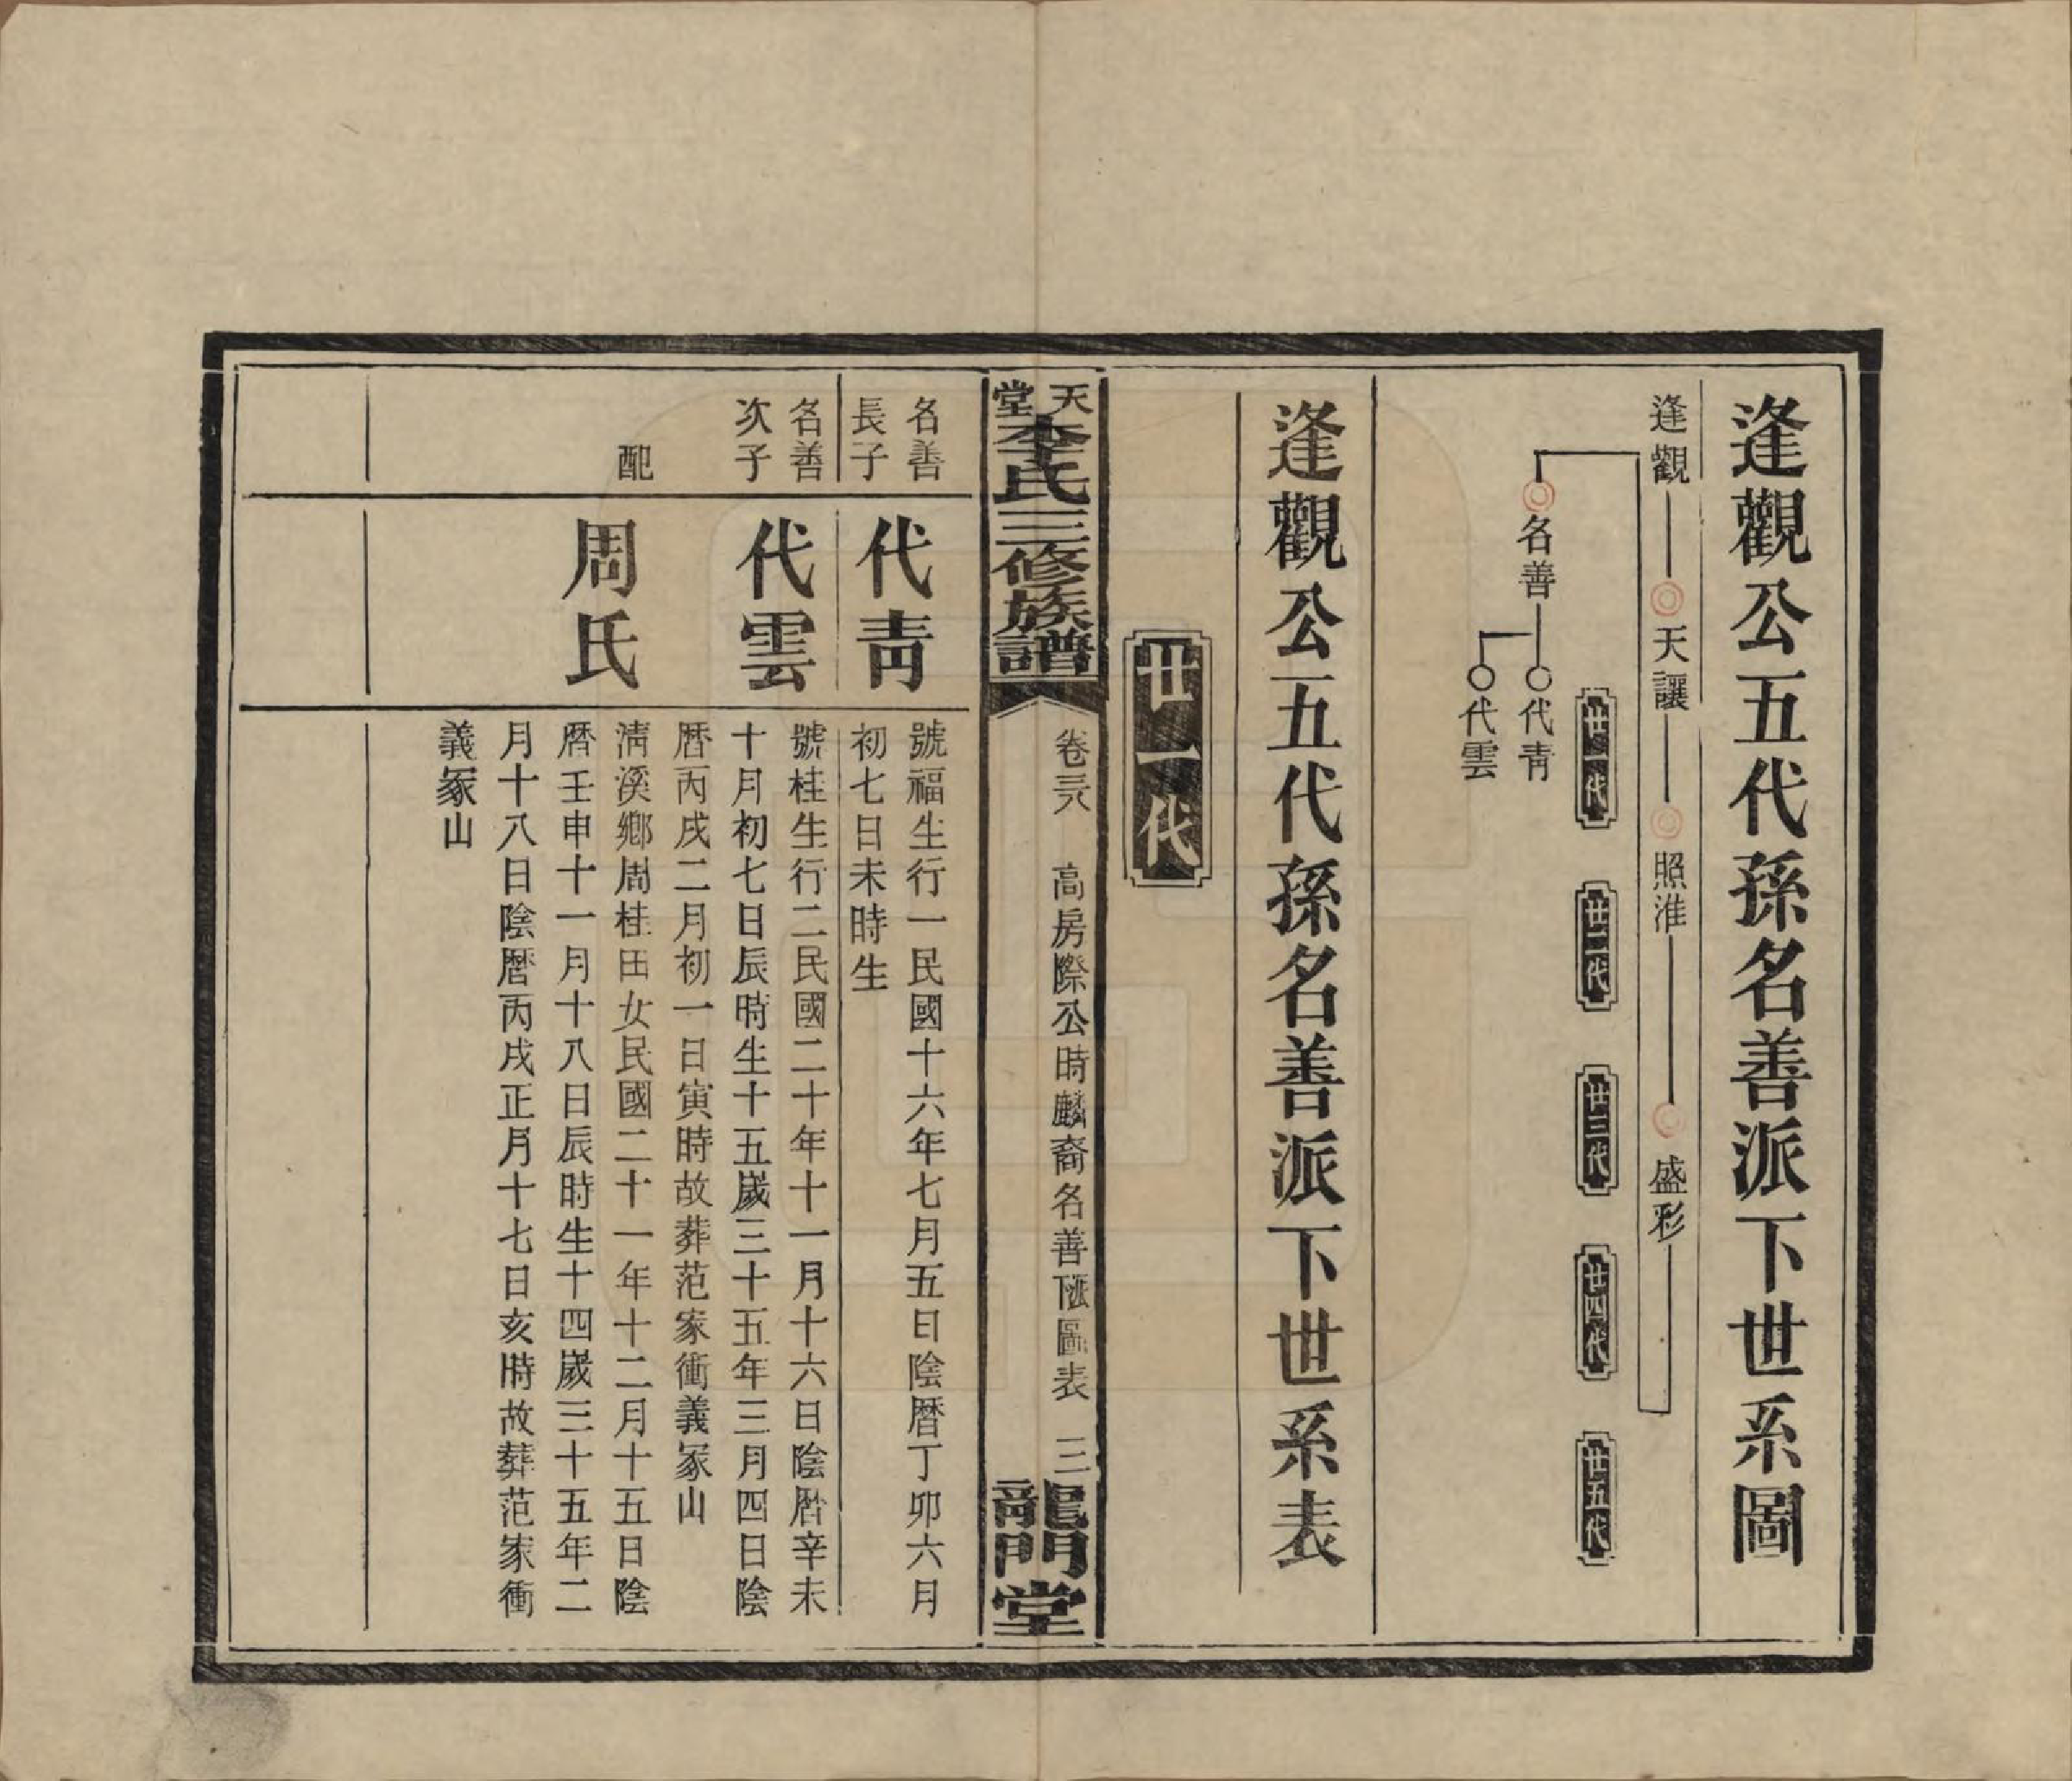 逢觀公五代孫名善派下世系圖
逢觀
天讓
照淮
盛彩
廿一代
廿二代
廿三代
廿四代
廿五代
名善
代靑
代雲
逢觀公五代孫名善派下世系表
廿一代
天堂李氏三修族譜
卷三八
高房際公時麟裔名善
圖表
三
龍門堂
名善
長子
代靑
號福生行一民國十六年七月五日陰曆丁卯六月
初七日未時生
名善
次子
代雲
號桂生行二民國二十年十一月十六日陰曆辛未
十月初七日辰時生十五歲三十五年三月四日陰
曆丙戌二月初一日寅時故葬范家衝義冢山
配
周氏
淸溪鄉周桂田女民國二十一年十二月十五日陰
曆壬申十一月十八日辰時生十四歲三十五年二
月十八日陰曆丙戌正月十七日亥時故葬范家衝
義冢山